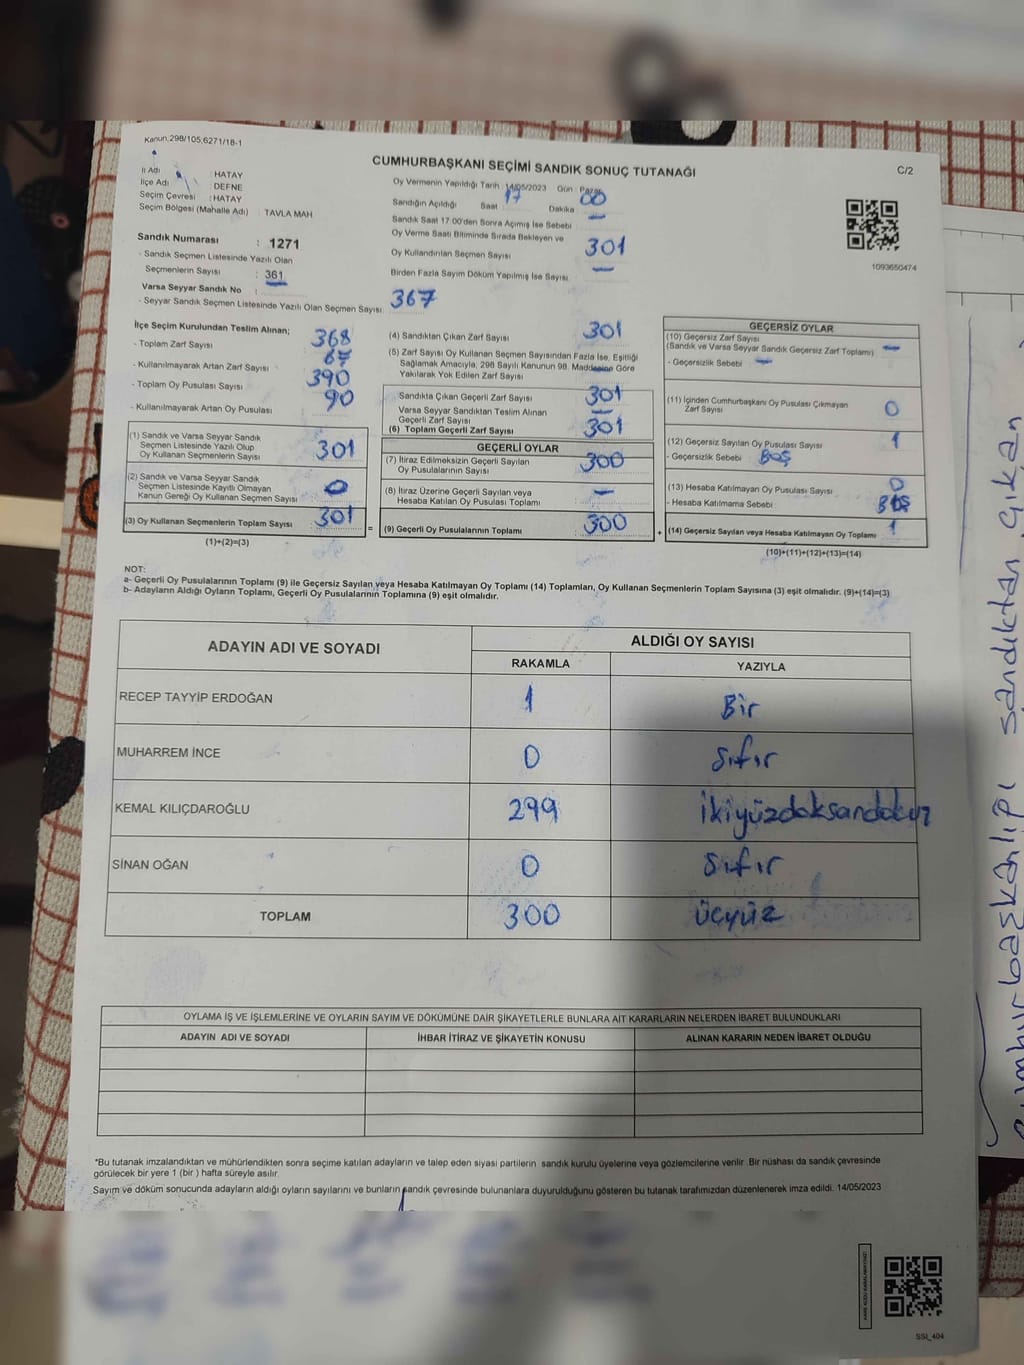 Kanun:298/105,6271/18-1
CUMHURBAŞKANI SEÇİMİ SANDIK SONUÇ TUTANAĞI
C/2
İl Adı : HATAY
İlçe Adı : DEFNE
Seçim Çevresi : HATAY
Seçim Bölgesi (Mahalle Adı) : TAVLA MAH
Sandık Numarası : 1271
- Sandık Seçmen Listesinde Yazılı Olan
Seçmenlerin Sayısı : 361
Varsa Seyyar Sandık No :
- Seyyar Sandık Seçmen Listesinde Yazılı Olan Seçmen Sayısı 367
Oy Vermenin Yapıldığı Tarih 14/05/2023 Gün Pazar
Sandığın Açıldığı Saat 17 Dakika 00
Sandık Saat 17.00'den Sonra Açılmış İse Sebebi —
Oy Verme Saati Bitiminde Sırada Bekleyen ve
Oy Kullandırılan Seçmen Sayısı 301
Birden Fazla Sayım Döküm Yapılmış İse Sayısı —
1093650474
İlçe Seçim Kurulundan Teslim Alınan;
- Toplam Zarf Sayısı 368
- Kullanılmayarak Artan Zarf Sayısı 67
- Toplam Oy Pusulası Sayısı 390
- Kullanılmayarak Artan Oy Pusulası 90
(1) Sandık ve Varsa Seyyar Sandık
Seçmen Listesinde Yazılı Olup
Oy Kullanan Seçmenlerin Sayısı 301
(2) Sandık ve Varsa Seyyar Sandık
Seçmen Listesinde Kayıtlı Olmayan
Kanun Gereği Oy Kullanan Seçmen Sayısı 0
(3) Oy Kullanan Seçmenlerin Toplam Sayısı 301
(1)+(2)=(3)
(4) Sandıktan Çıkan Zarf Sayısı 301
(5) Zarf Sayısı Oy Kullanan Seçmen Sayısından Fazla İse, Eşitliği
Sağlamak Amacıyla, 298 Sayılı Kanunun 98. Maddesine Göre
Yakılarak Yok Edilen Zarf Sayısı —
Sandıkta Çıkan Geçerli Zarf Sayısı 301
Varsa Seyyar Sandıktan Teslim Alınan
Geçerli Zarf Sayısı —
(6) Toplam Geçerli Zarf Sayısı 301
GEÇERLİ OYLAR
(7) İtiraz Edilmeksizin Geçerli Sayılan
Oy Pusulalarının Sayısı 300
(8) İtiraz Üzerine Geçerli Sayılan veya
Hesaba Katılan Oy Pusulası Toplamı —
= (9) Geçerli Oy Pusulalarının Toplamı 300 +
GEÇERSİZ OYLAR
(10) Geçersiz Zarf Sayısı
(Sandık ve Varsa Seyyar Sandık Geçersiz Zarf Toplamı) —
- Geçersizlik Sebebi —
(11) İçinden Cumhurbaşkanı Oy Pusulası Çıkmayan
Zarf Sayısı 0
(12) Geçersiz Sayılan Oy Pusulası Sayısı 1
- Geçersizlik Sebebi BOŞ
(13) Hesaba Katılmayan Oy Pusulası Sayısı 0
- Hesaba Katılmama Sebebi
(14) Geçersiz Sayılan veya Hesaba Katılmayan Oy Toplamı 1
(10)+(11)+(12)+(13)=(14)
NOT:
a- Geçerli Oy Pusulalarının Toplamı (9) ile Geçersiz Sayılan veya Hesaba Katılmayan Oy Toplamı (14) Toplamları, Oy Kullanan Seçmenlerin Toplam Sayısına (3) eşit olmalıdır. (9)+(14)=(3)
b- Adayların Aldığı Oyların Toplamı, Geçerli Oy Pusulalarının Toplamına (9) eşit olmalıdır.
ADAYIN ADI VE SOYADI
ALDIĞI OY SAYISI
RAKAMLA YAZIYLA
RECEP TAYYİP ERDOĞAN 1 Bir
MUHARREM İNCE 0 Sıfır
KEMAL KILIÇDAROĞLU 299 İkiyüzdoksandokuz
SİNAN OĞAN 0 Sıfır
TOPLAM 300 üçyüz
OYLAMA İŞ VE İŞLEMLERİNE VE OYLARIN SAYIM VE DÖKÜMÜNE DAİR ŞİKAYETLERLE BUNLARA AİT KARARLARIN NELERDEN İBARET BULUNDUKLARI
ADAYIN ADI VE SOYADI İHBAR İTİRAZ VE ŞİKAYETİN KONUSU ALINAN KARARIN NEDEN İBARET OLDUĞU
*Bu tutanak imzalandıktan ve mühürlendikten sonra seçime katılan adayların ve talep eden siyasi partilerin sandık kurulu üyelerine veya gözlemcilerine verilir. Bir nüshası da sandık çevresinde
görülecek bir yere 1 (bir ) hafta süreyle asılır.
Sayım ve döküm sonucunda adayların aldığı oyların sayılarını ve bunların sandık çevresinde bulunanlara duyurulduğunu gösteren bu tutanak tarafımızdan düzenlenerek imza edildi. 14/05/2023
SSI_404
Cumhurbaşkanlığı sandıktan çıkan